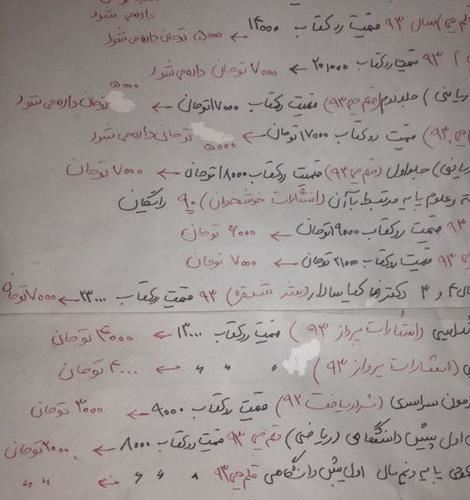 داده می شود
قلم چی) سال ۹۳ قیمت رو کتاب ۱۴۰۰۰ ← ۵۰۰۰ تومان داده می شود
۹۳ قیمت رو کتاب ۲۰۱۰۰۰ ← ۷۰۰۰ تومان داده می شود
ریاضی) جلد دوم (قلم چی ۹۳) قیمت رو کتاب ۱۷۰۰۰ تومان ← ۵۰۰۰ تومان داده می شود
چی ۹۳) قیمت رو کتاب ۱۷۰۰۰ تومان ← ۵۰۰۰ تومان داده می شود
ریاضی) جلد اول (قلم چی ۹۳) قیمت رو کتاب ۱۸۰۰۰ تومان ← ۷۰۰۰ تومان
و علوم پایه مرتبط با آن (انتشارات خوشخوان) ۹۰ رایگان
۹۳ قیمت رو کتاب ۱۹۰۰۰ تومان ← ۶۰۰۰ تومان
چی ۹۳ قیمت رو کتاب ۲۱۰۰۰ تومان ← ۷۰۰۰ تومان
۲ و ۳ دکتر رضا کیاسالار ۹۳ قیمت رو کتاب ۲۳۰۰۰ ← ۷۰۰۰ تومان
(انتشارات پرواز ۹۳) قیمت رو کتاب ۱۳۰۰۰ ← ۴۰۰۰ تومان
(انتشارات پرواز ۹۳) ״ ״ ״ ← ۴۰۰۰ تومان
آزمون سراسری (نشر دریافت ۹۲) قیمت رو کتاب ۹۰۰۰ ← ۳۰۰۰ تومان
اول پیش دانشگاهی (ریاضی) قلم چی ۹۳ قیمت رو کتاب ۸۰۰۰ ← ۲۰۰۰ تومان
پایه و نیم سال اول پیش دانشگاهی قلم چی ۹۳ ״ ״ ״ ← ״ ״